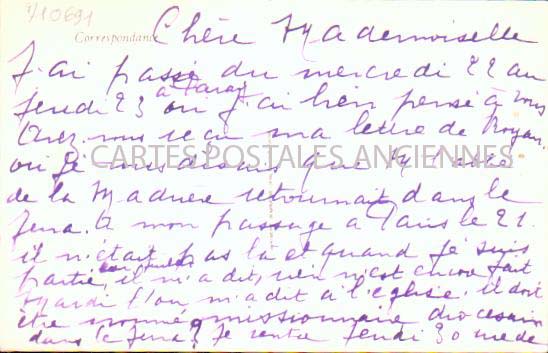 1/10691
Correspondance
Chère Mademoiselle
J'ai passé du mercredi 22 au
à Paray
jeudi 23 où j'ai bien pensé à vous
Avez vous reçu ma lettre de Royan.
où je vous disais que M l'abbé
CARTES POSTALES ANCIENNES
de la Madnère retournait dans le
Jura. A mon passage à Paris le 21.
il n'était pas là et quand je suis
partie, il m'a dit, rien n'est encore fait
Mardi l'on m'a dit à l'église. il doit
être nommé missionnaire diocesain
dans le Jura? Je rentre jeudi 30 me de